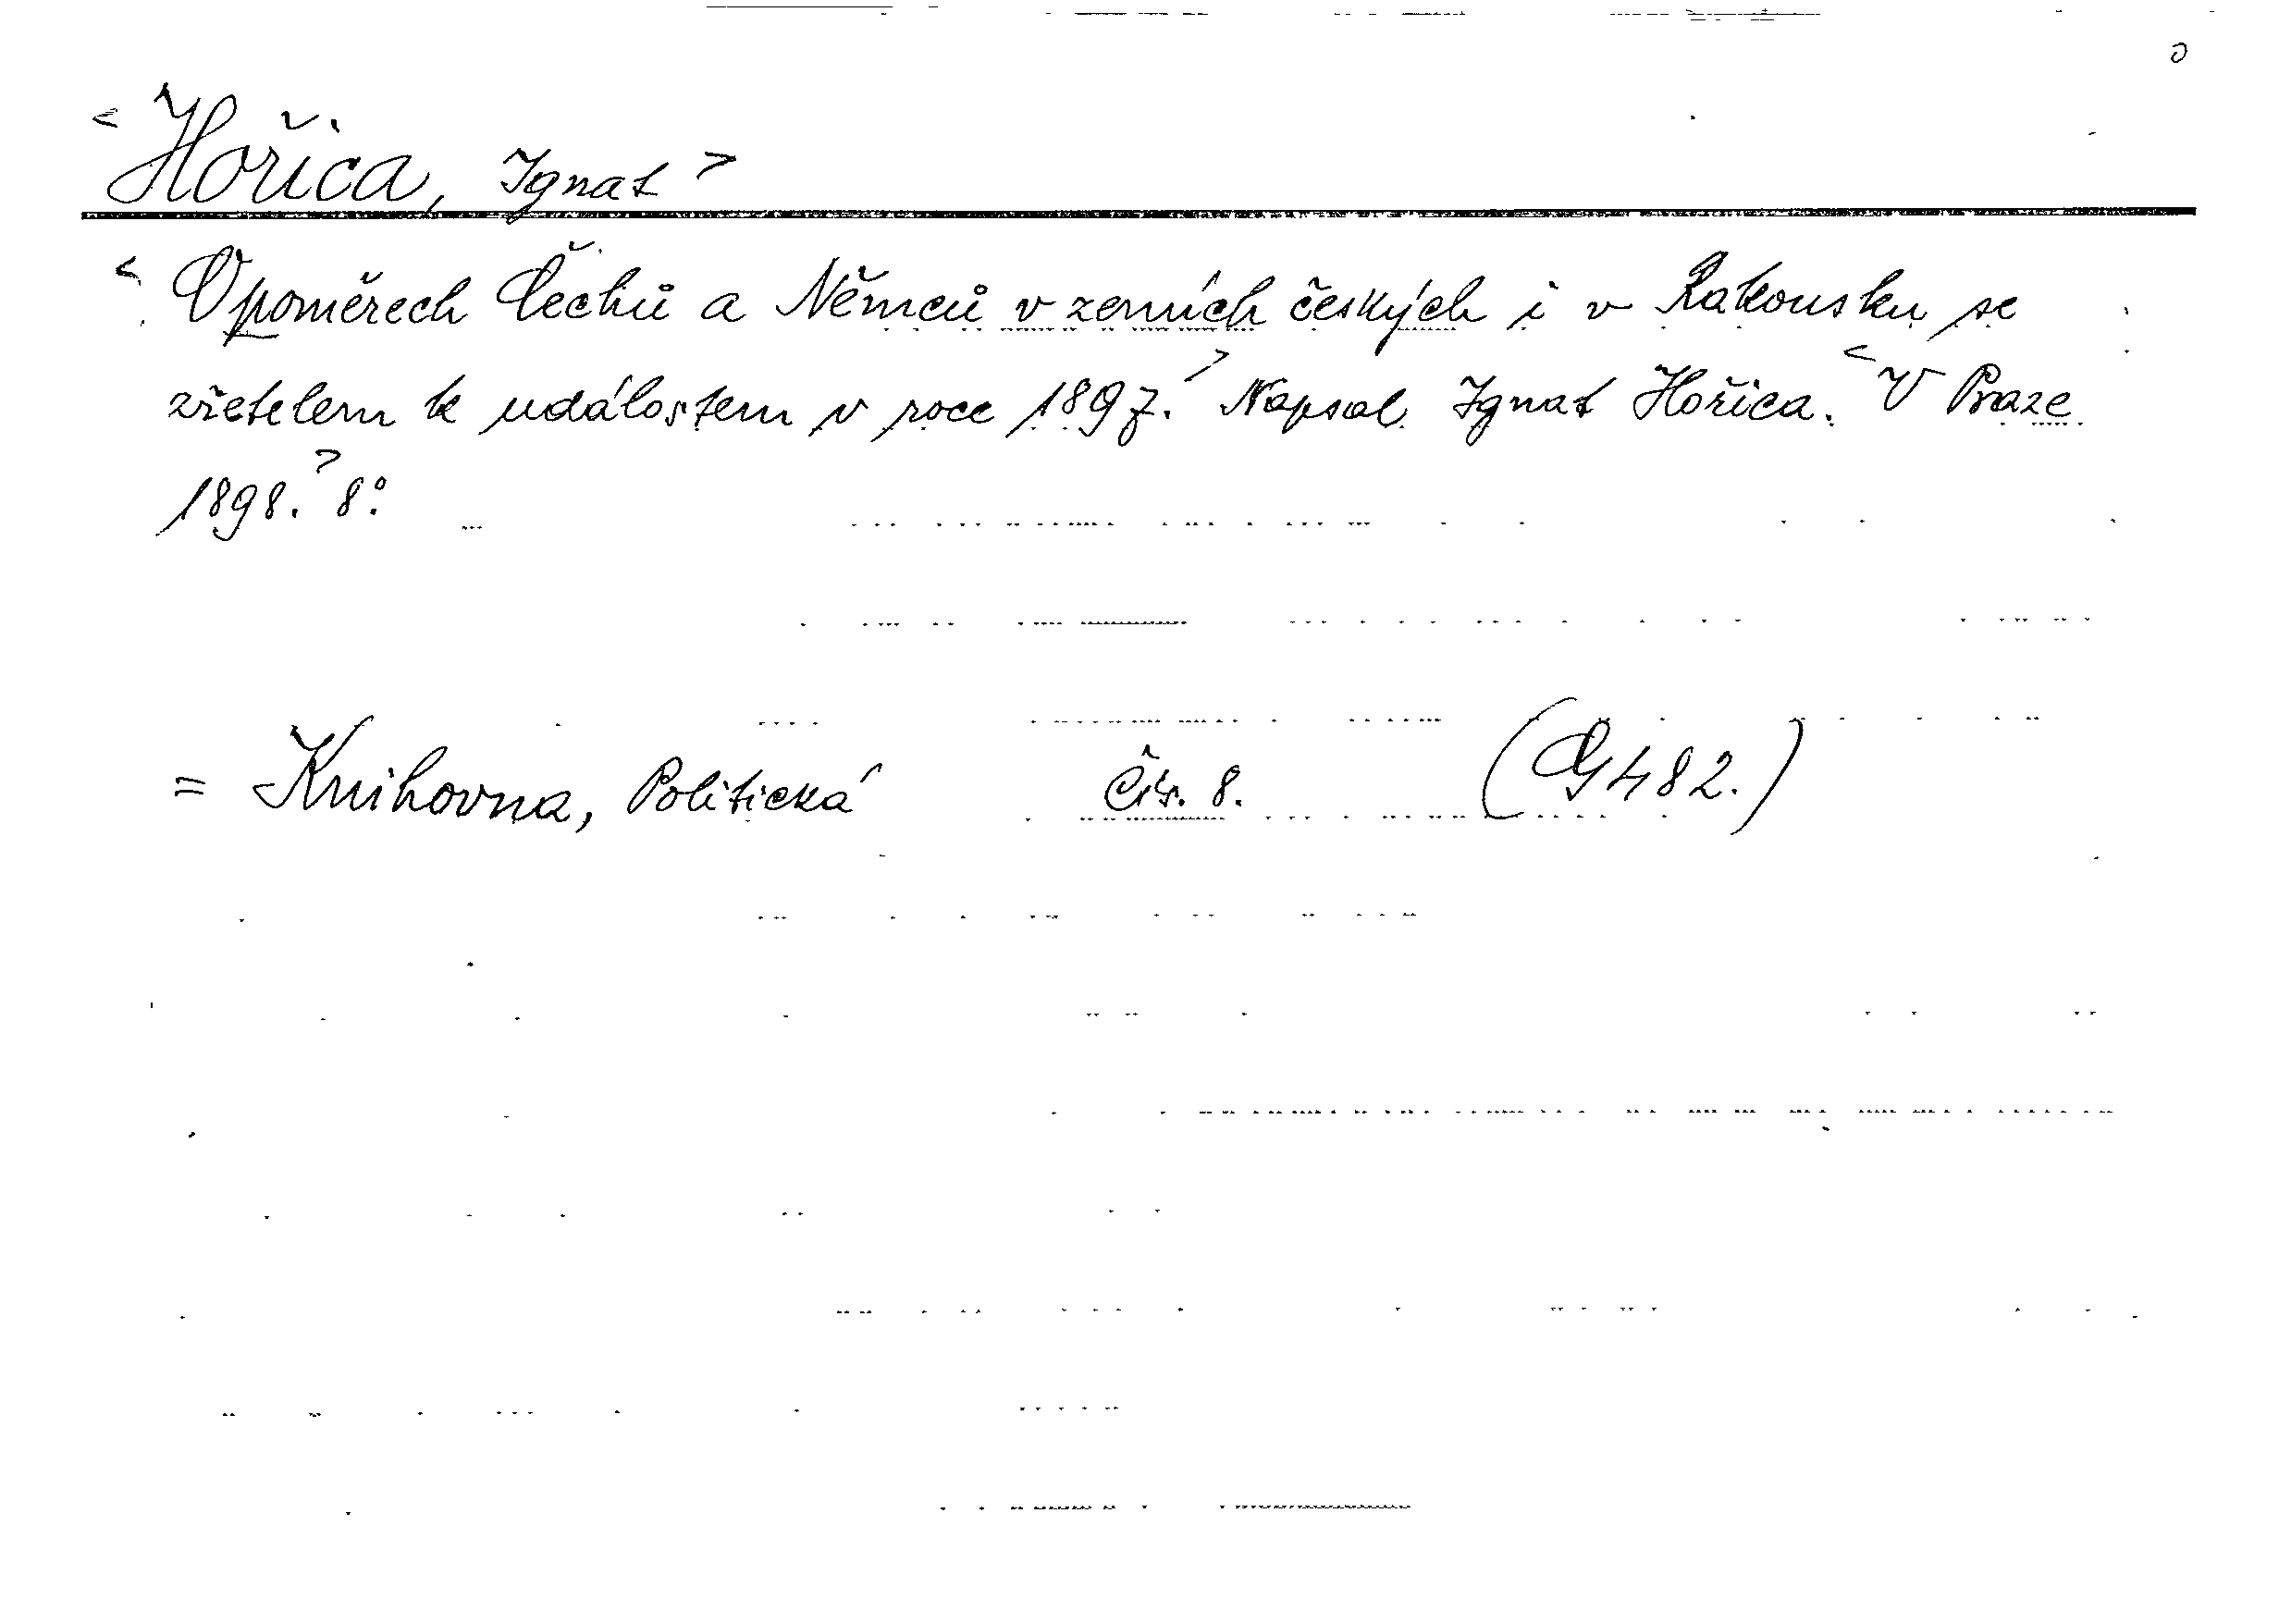 < Hořica, Ignat >
< O poměrech Čechů a Němců v zemích českých i v Rakousku se
zřetelem k událostem v roce 1897. > Napsal Ignat Hořica. < V Praze
1898. > 8°.
= Knihovna, Politická Čís. 8. (G 482.)